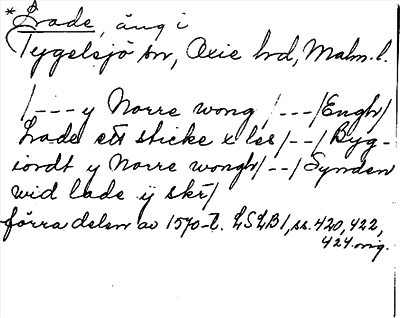 * Lade, äng i
Tygelsjö sn, Oxie hd, Malm. l.
/--- y Norre wong /---/ Engh/
Lade ett sticke x les /--/ Byg-
iordt y Norre wongh /--/ Synden
wid lade ij skr/
förra delen av 1570-t. LSLB1, ss. 420, 422,
424 orig.